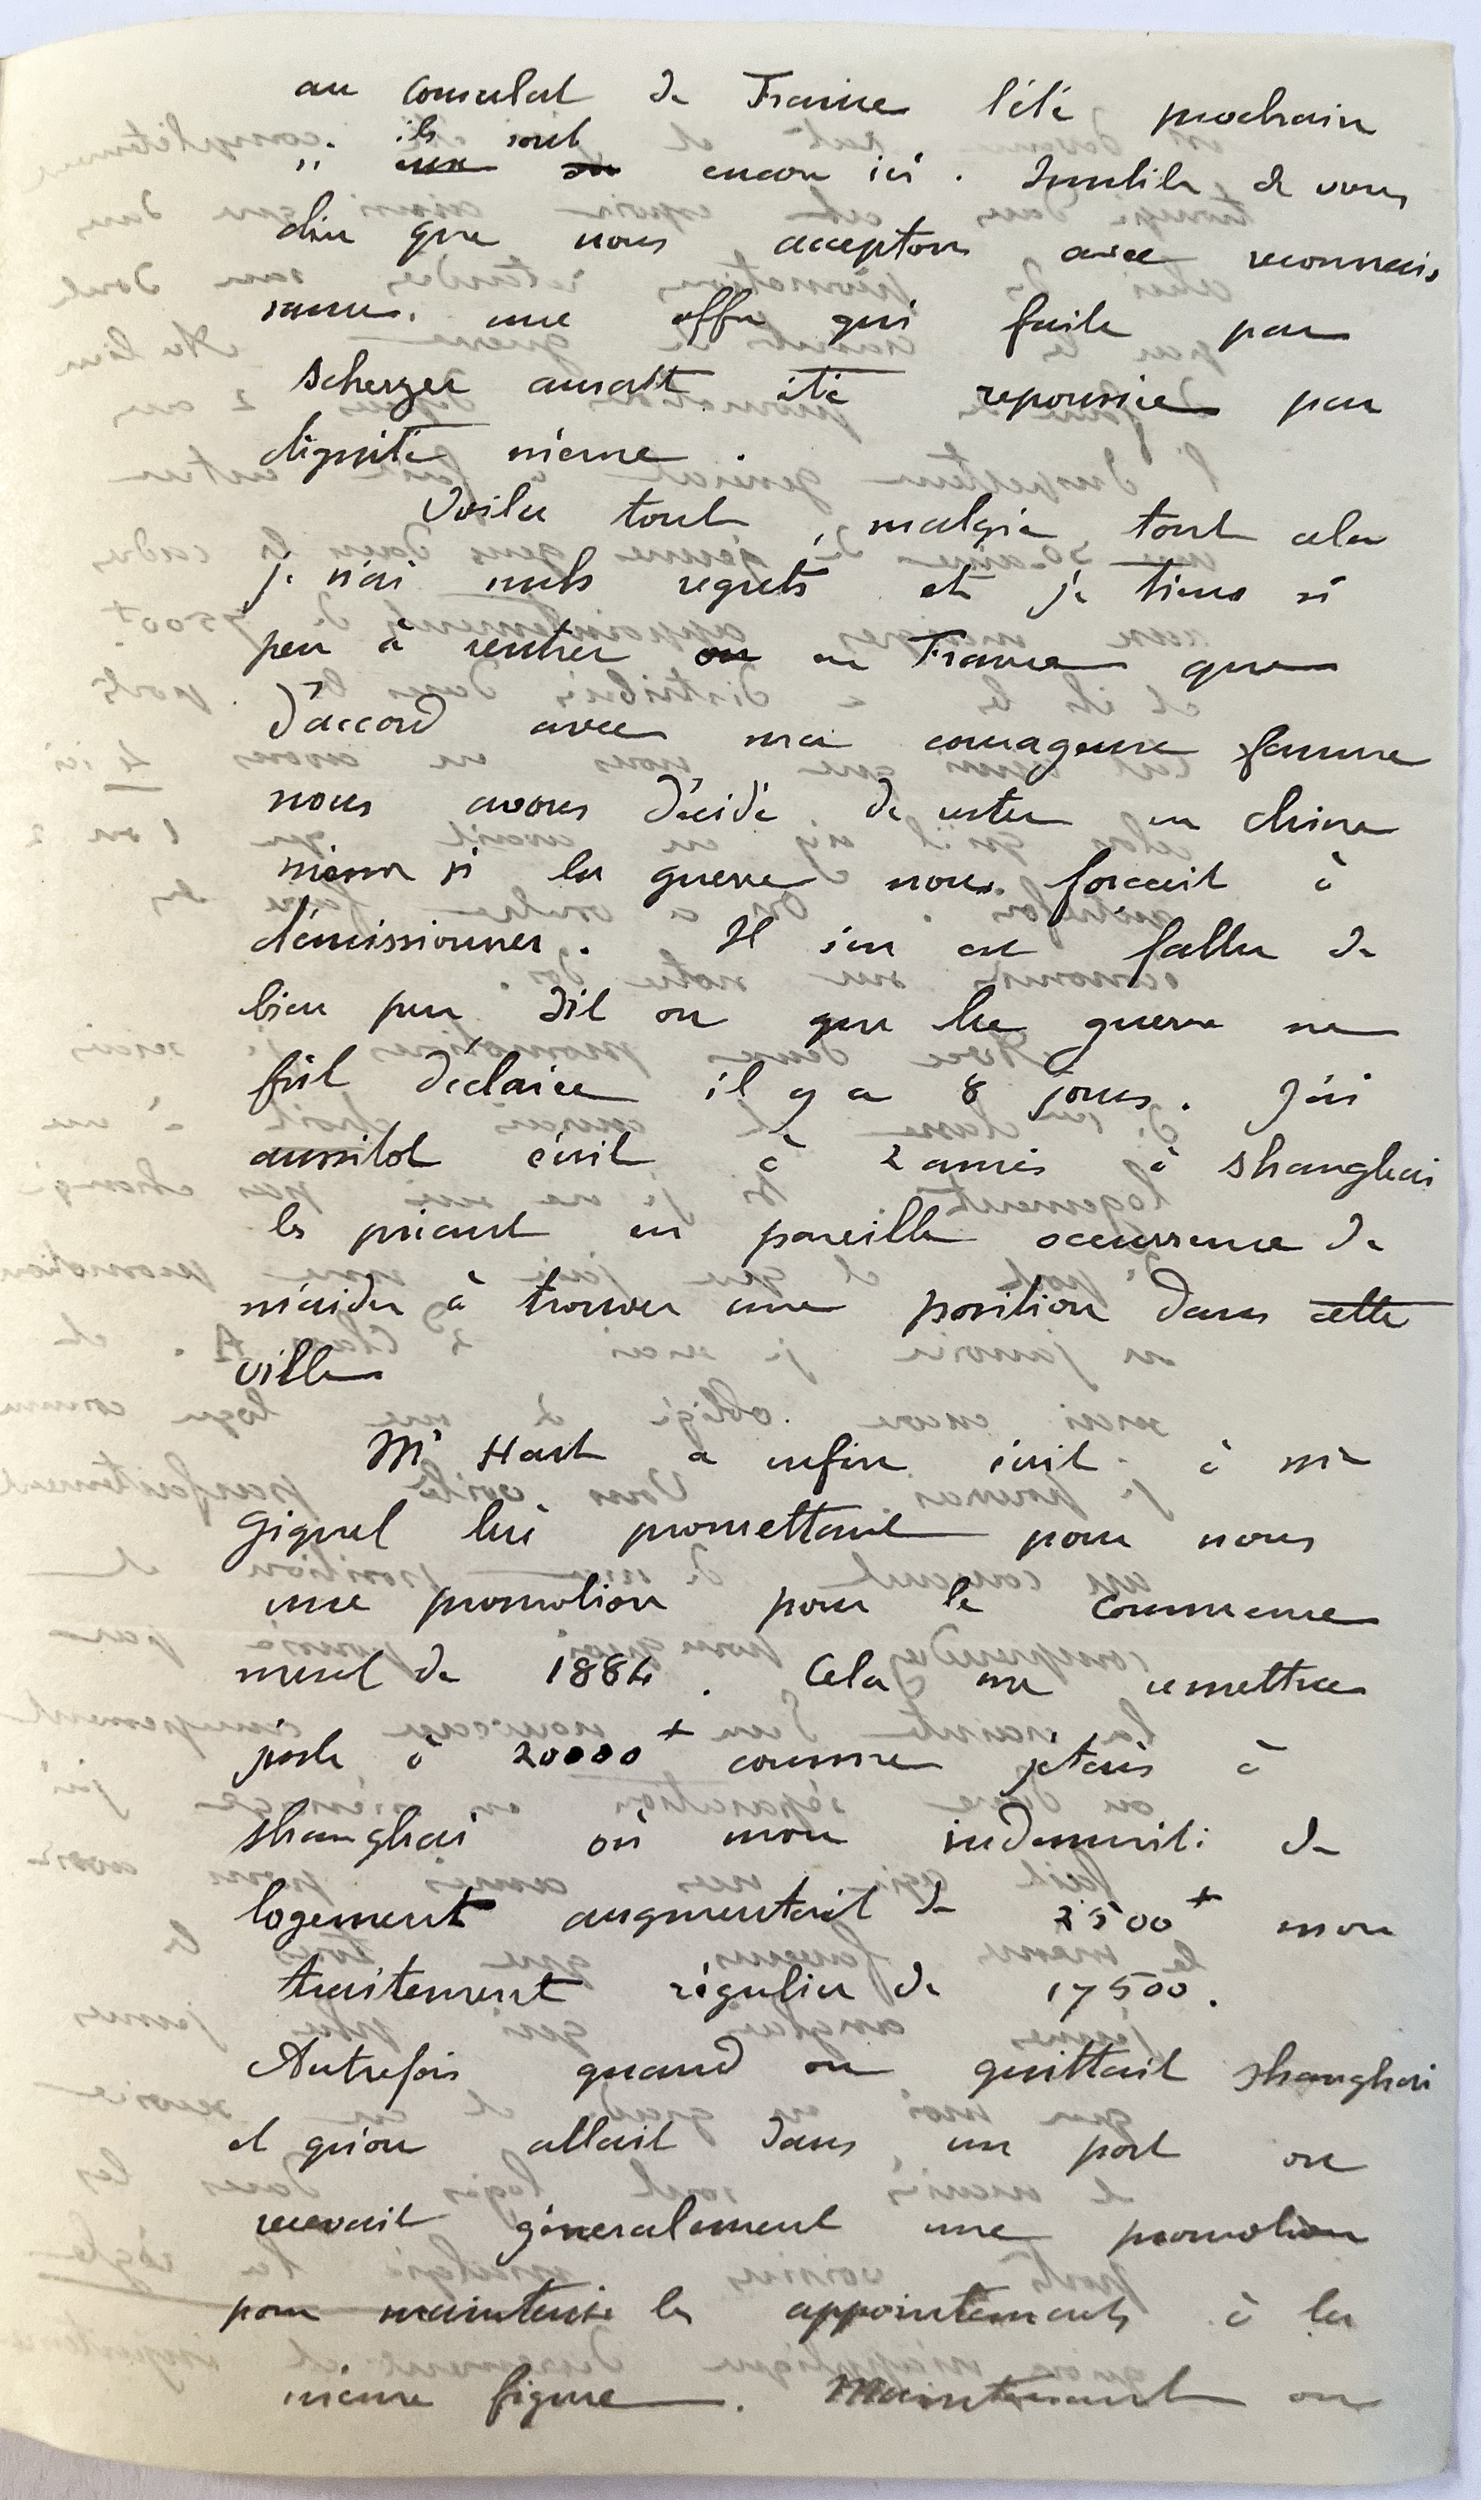 au consulat de France l'été prochain
si ils sont
encore ici. Inutile de vous
dire que nous acceptons avec reconnais
sance. une offre qui faite par
Scherzer aurait été repoussée par
dignité même.
Voila tout, malgré tout cela
je n'ai nuls regrets et je tiens si
peu à rentrer en France que
d'accord avec ma courageuse femme
nous avons décidé de rester en Chine
même si la guerre nous forçait à
démissionner. Il s'en est fallu de
bien peu dit on que la guerre ne
fût déclarée il y a 8 jours. J'ai
aussitot écrit à 2 amis à Shanghai
les priant en pareille occurrence de
m'aider à trouver une position dans cette
ville
Mr Hart a enfin écrit à Mr
Giquel lui promettant pour nous
une promotion pour le commence
ment de 1884. Cela me remettra
juste à 20000 + comme j'étais à
Shanghai où mon indemnité de
logement augmentait de 2500 + mon
traitement régulier de 17500.
Autrefois quand on quittait Shanghai
et qu'on allait dans un port on
recevait généralement une promotion
pour maintenir les appointements à la
même figure. Maintenant on